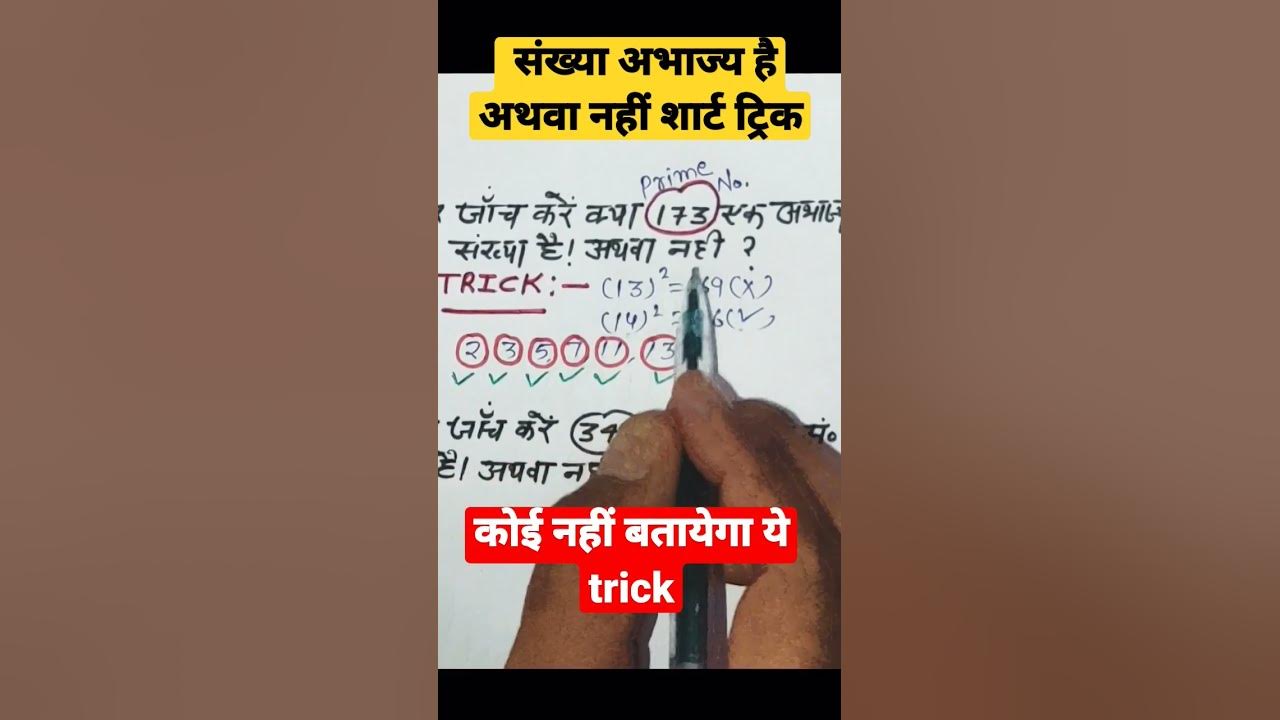 संख्या अभाज्य है
अथवा नहीं शार्ट ट्रिक
Prime No.
जाँच करें क्या 173 एक
संख्या है! अथवा नहीं ?
TRICK :— (13)² = 69 (x)
(14)² = 6 (✓)
2 3 5 7 11, 13
✓ ✓ ✓ ✓ ✓ ✓
जाँच करें 34 सं.
है। अथवा न
कोई नहीं बतायेगा ये
trick